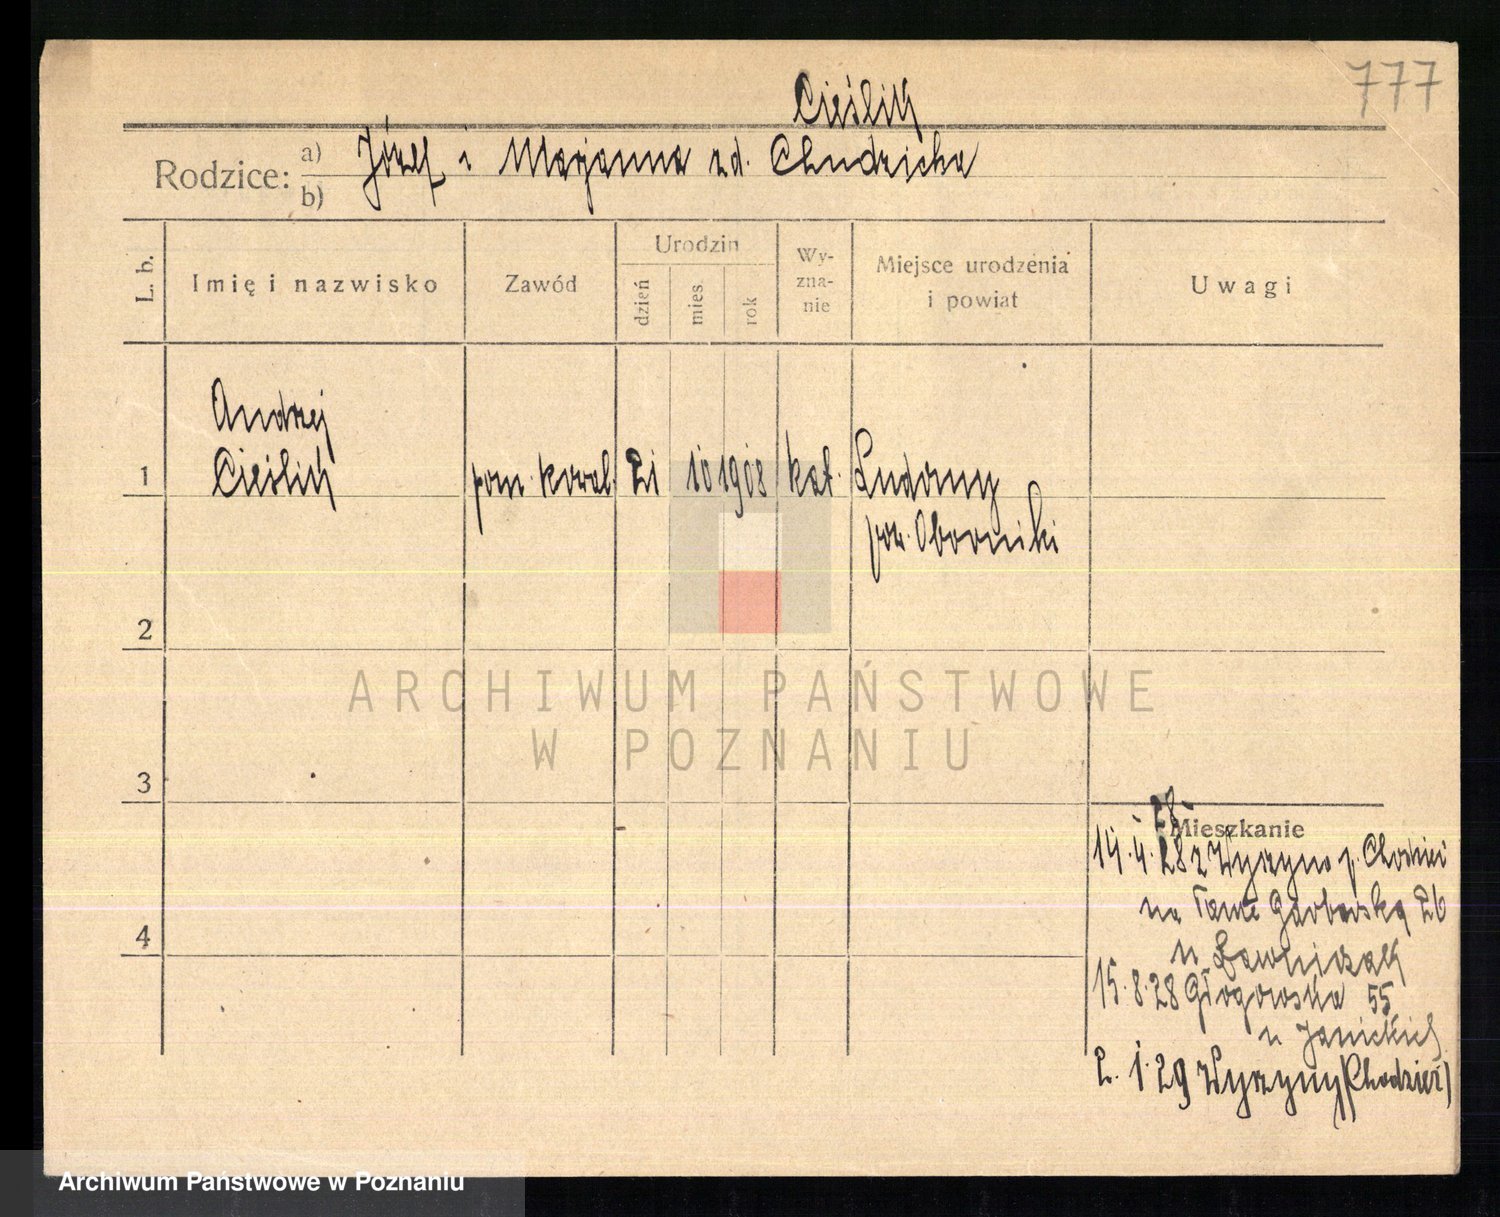 777
Cieślik
Rodzice: a) b) Józef i Marjanna zd. Chudzicka
L. b. Imię i nazwisko Zawód Urodzin dzień mies. rok Wy-zna-nie Miejsce urodzenia i powiat Uwagi
Andrzej
1 Cieślik pom. kowal. 21 10 1908 kat. Ludomy
pow. Oborniki
2
ARCHIWUM PAŃSTWOWE
W POZNANIU
3
Mieszkanie
14.4.28 z Wyszyno p. Chodzież
na Tamę Garbarską 26
4
u Ławniczak
15.8.28 Głogowska 55
u Janickich
2.1.29 Wyszyny (Chodzież)
Archiwum Państwowe w Poznaniu